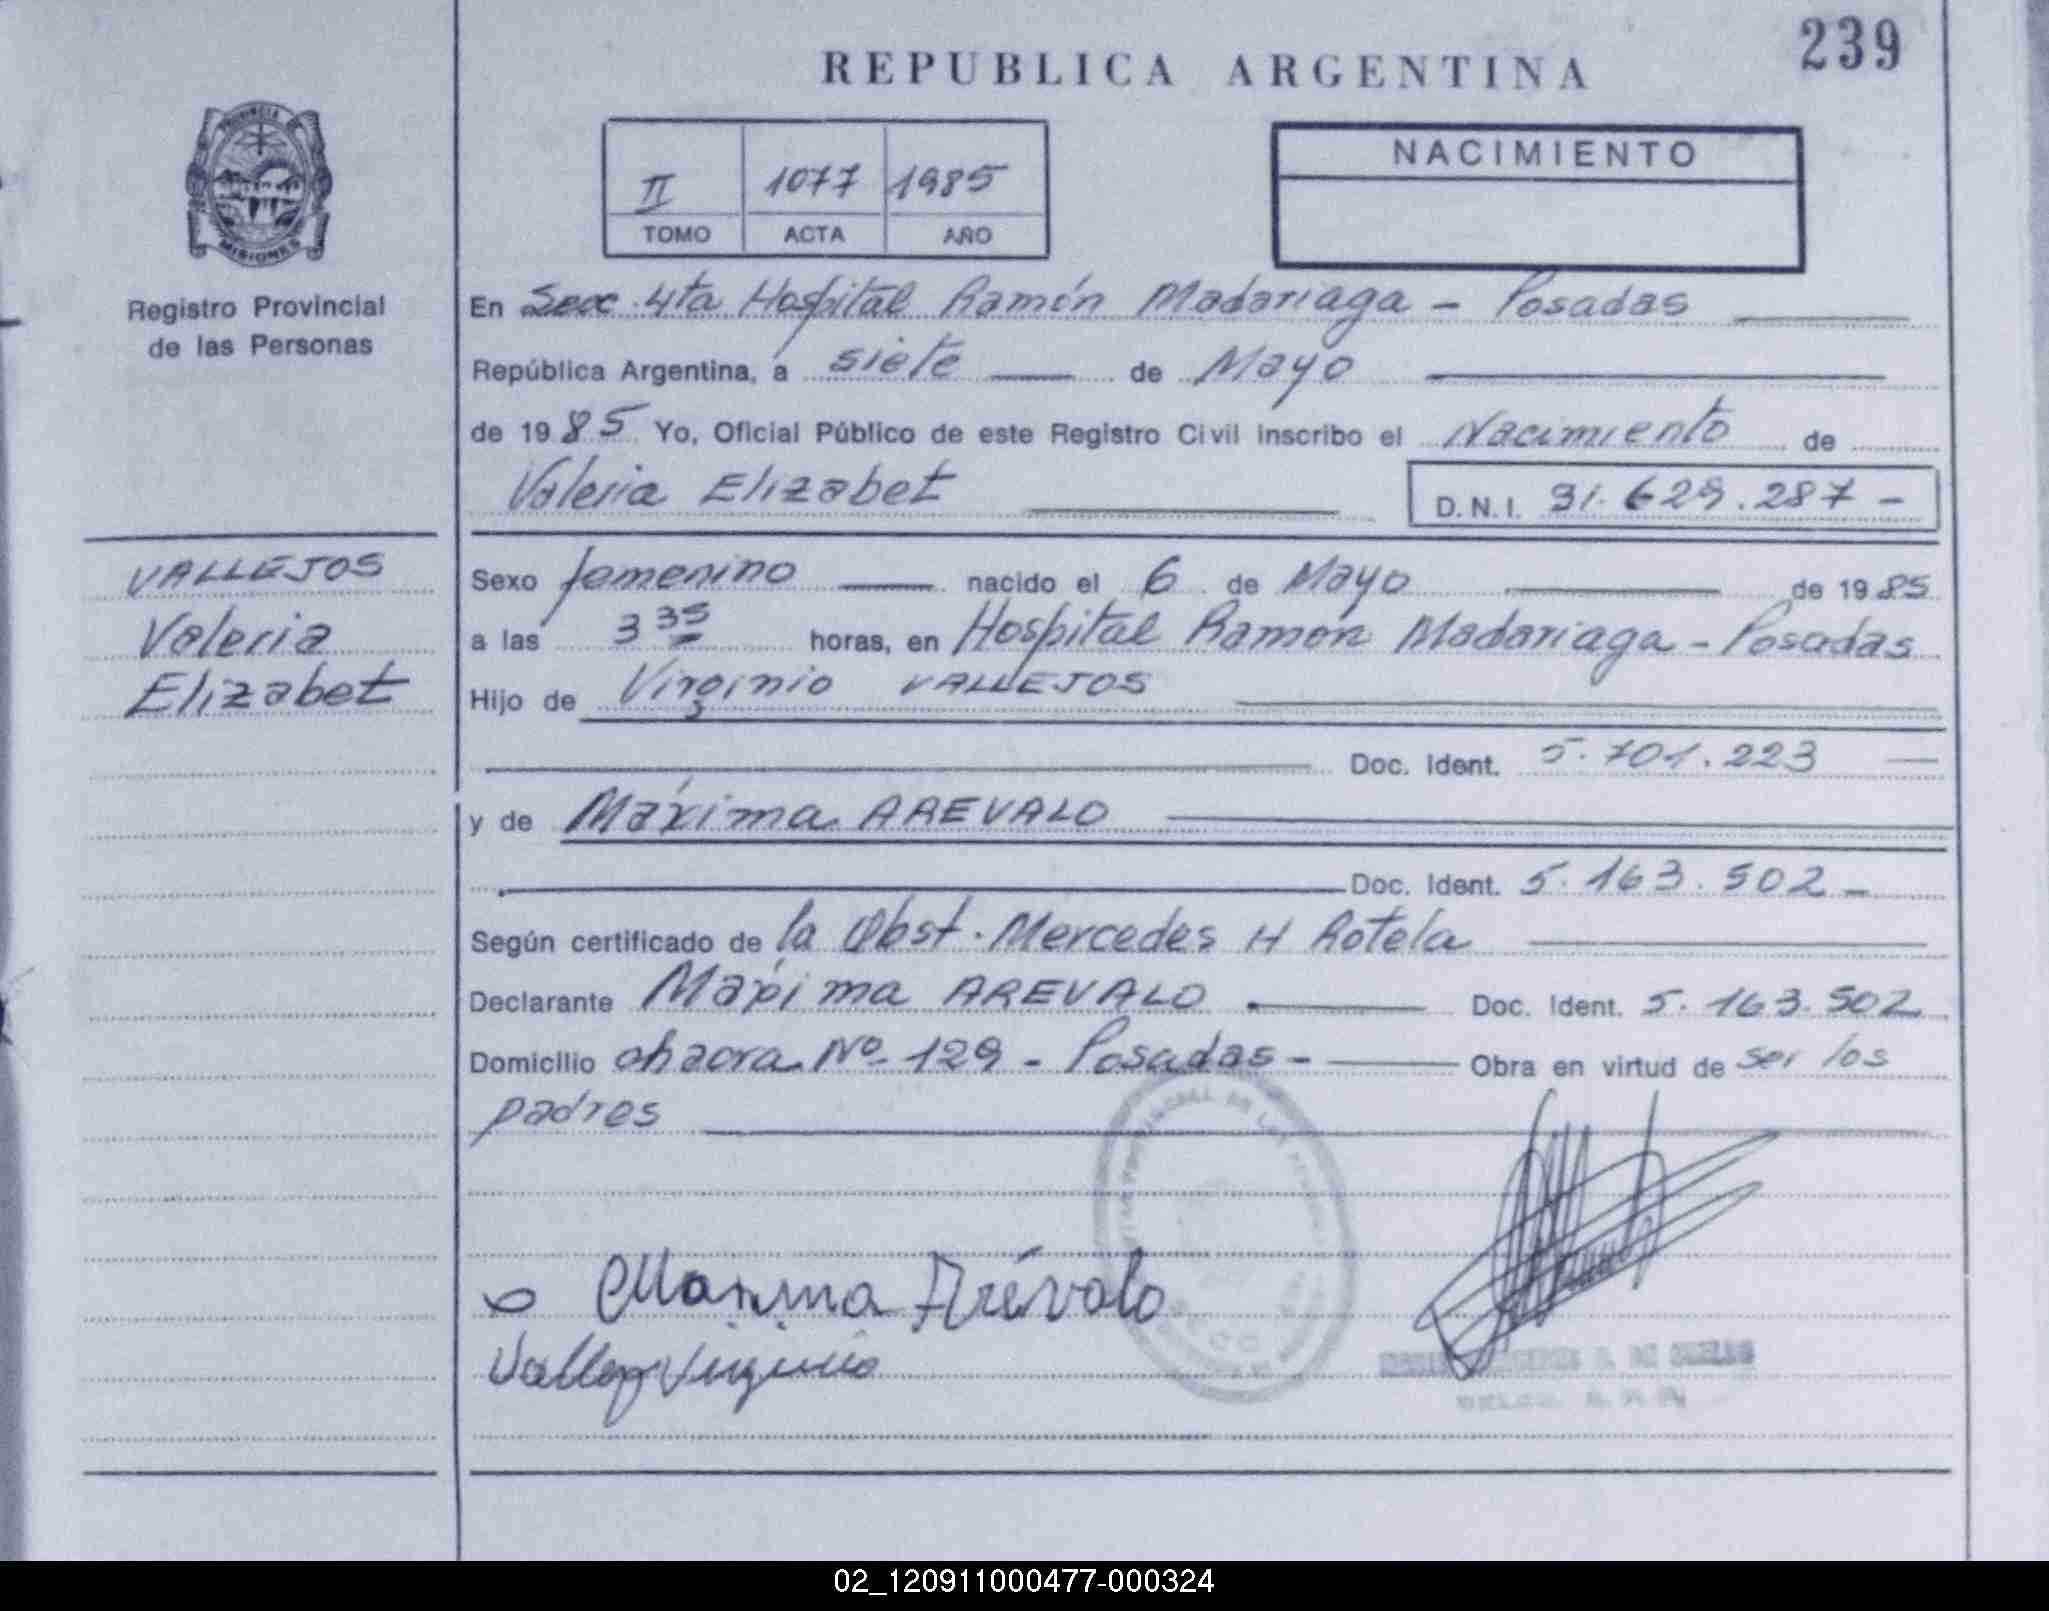 239
REPUBLICA ARGENTINA
PROVINCIA DE
MISIONES
Registro Provincial
de las Personas
II 1077 1985
TOMO ACTA AÑO
NACIMIENTO
En Secc. 4ta Hospital Ramón Madariaga - Posadas
República Argentina, a siete de Mayo
de 1985 Yo, Oficial Público de este Registro Civil inscribo el Nacimiento de
Valeria Elizabet D.N.I. 31.629.287 -
VALLEJOS
Valeria
Elizabet
Sexo femenino nacido el 6 de Mayo de 1985
a las 3 35 horas, en Hospital Ramón Madariaga - Posadas
Hijo de Virginio VALLEJOS
Doc. Ident. 5.701.223
y de Máxima AREVALO
Doc. Ident. 5.163.502 -
Según certificado de la Obst. Mercedes H Rotela
Declarante Máxima AREVALO Doc. Ident. 5.163.502
Domicilio chacra Nº 129 - Posadas - Obra en virtud de ser los
padres
Maxima Arévalo
Virginio
02_120911000477-000324